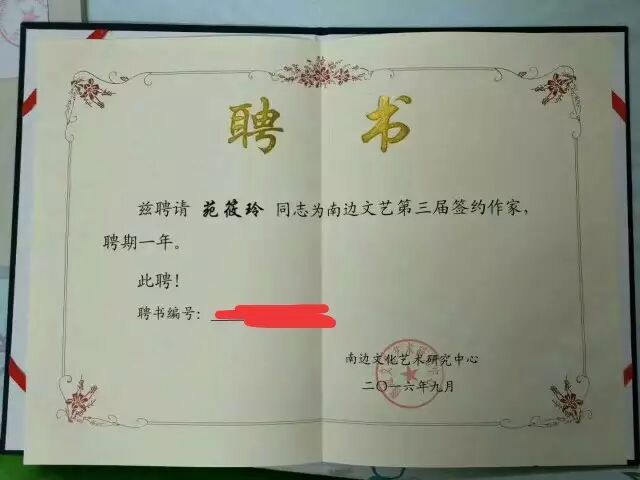 聘 书
兹聘请 苑筱玲 同志为南边文艺第三届签约作家，
聘期一年。
此聘！
聘书编号：
南边文化艺术研究中心
二〇一六年九月